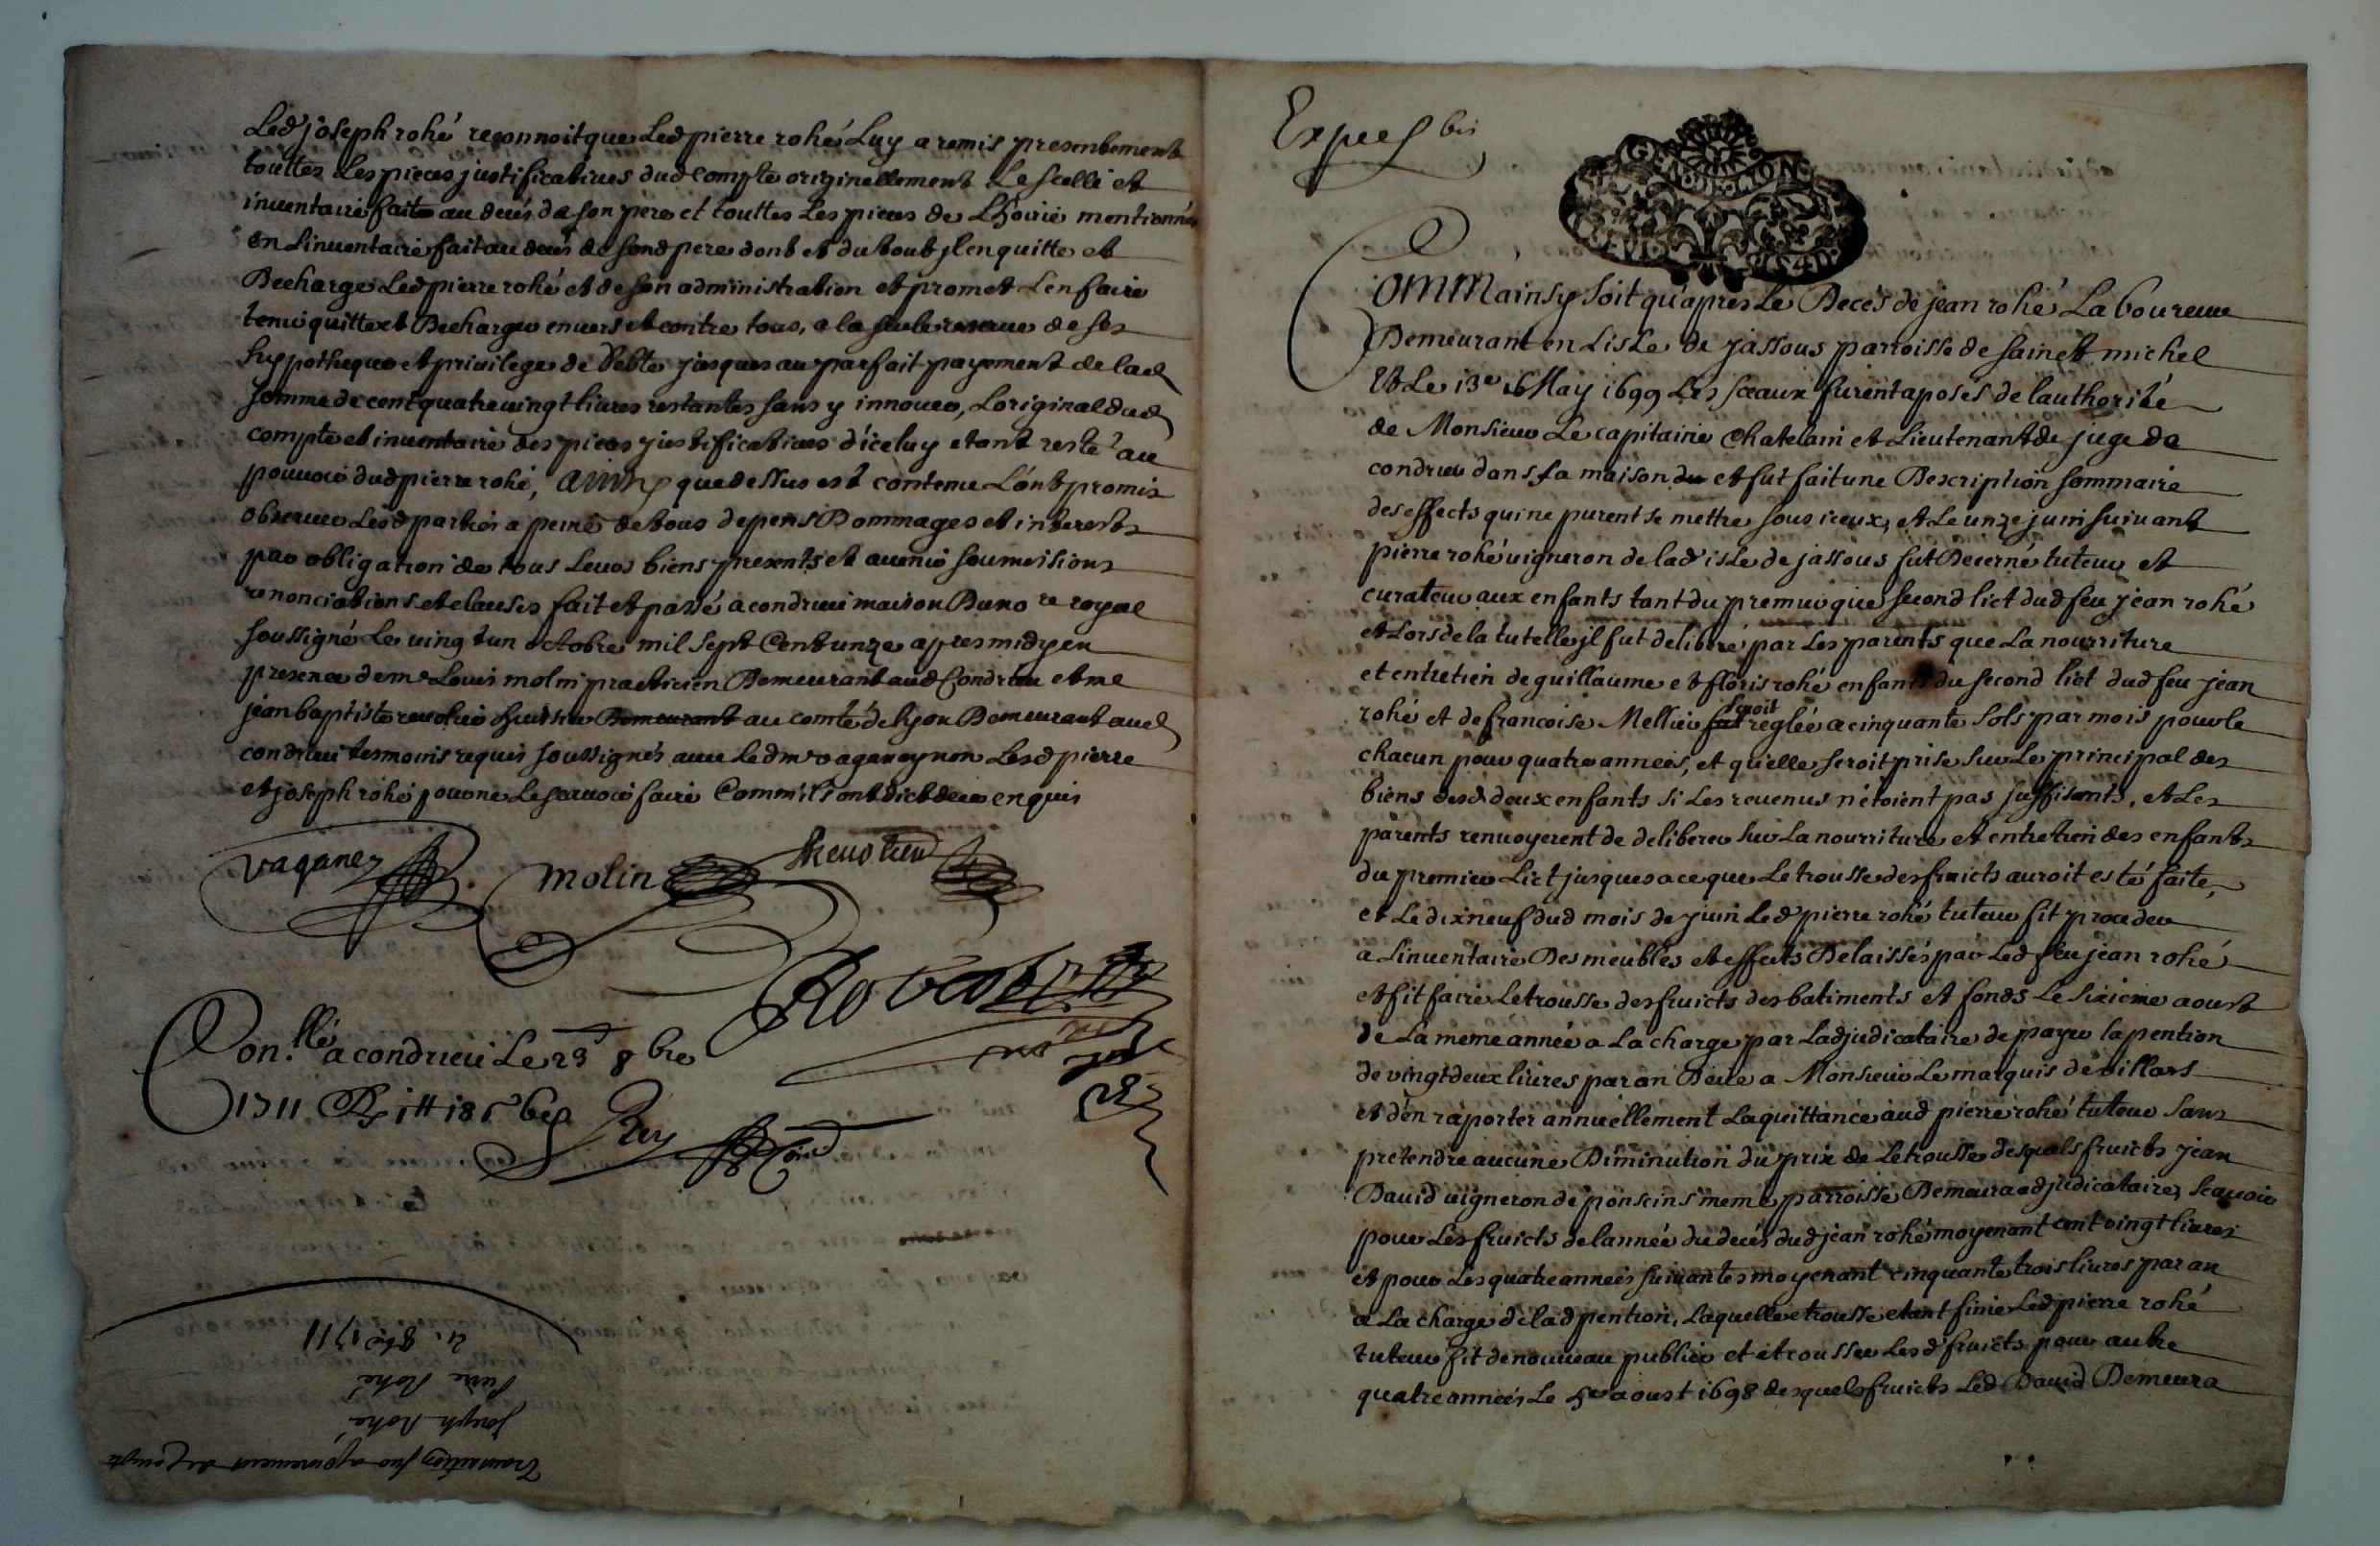 Led joseph rohé reconnoit que Led pierre rohé Luy a remis presentement
touttes Les pieces justificatives dud compte originellement Le scellé et
inventaire fait au decés de son pere et touttes Les pieces de Lhoirie mentionnées
en Linventaire fait au decés de sond pere dont et du tout jl en quitte et
Decharge Led pierre rohé et de son administration et promet Len faire
tenir quitte et Decharger envers et contre tous, a la seule reserve de ses
hypotheques et privilege de debte jusques au parfait payement de lad
somme de cent quatre vingt livres restantes sans y innover, Loriginal dud
compte et inventaire des pieces justificatives d'iceluy etant resté au
pouvoir dud pierre rohé, ainsy que dessus est contenu L'ont promis
observer Lesd parties a peine de tous depens Dommages et interests
par obligation de tous Leurs biens presents et avenir soumissions
renonciations et clauses fait et passé a condrieu maison Du no re royal
soussigné Le vingt un octobre mil sept Cent unze apres midy en
presence de me Louis molin practicien Demeurant aud Condrieu et me
jean baptiste revolier huissier Demeurant au comté de Lyon Demeurant aud
condrieu tesmoins requis soussignés avec Led me vaganey non Lesd pierre
et joseph rohé pour ne Le scavoir faire Comm'ils ont dict de ce enquis
vaganey molin Revolier
Con.llé a condrieu Le 23 8bre
1711 R
Rey
Transaction sur ajournement de compte
Joseph Rohé
Pierre Rohé
21. 8bre 1711
Expee bis
Comm'ainsy soit qu'apres Le Decés de jean rohé Laboureur
Demeurant en Lisle de jassous parroisse de sainct michel
Et Le 13e May 1699 Les sceaux furent aposés de lauthorité
de Monsieur Le capitaine Chatelain et Lieutenant de juge de
condrieu dans sa maison du et fut fait une Description sommaire
des effects qui ne purent se mettre sous iceux, et Le unze juin suivant
pierre rohé vigneron de lad isle de jassous fut Decerné tuteur et
curateur aux enfants tant du premier que second lict dud feu jean rohé
et Lors de la tutelle jl fut deliberé par Les parents que La nourriture
et entretien de guillaume et floris rohé enfants du second lict dud feu jean
rohé et de francoise Mellier fut seroit reglée a cinquante sols par mois pour le
chacun pour quatre années, et qu'elle seroit prise sur Le principal des
biens desd deux enfants si Les revenus n'étoient pas suffisants, et Les
parents renvoyerent de deliberer sur La nourriture et entretien des enfants
du premier Lict jusques a ce que Letrousse des fruicts auroit esté faite,
et Le dix neuf dud mois de juin Led pierre rohé tuteur fit proceder
a Linventaire Des meubles et effects Delaissés par Led feu jean rohé
et fit faire Letrousse des fruicts des batiments et fonds Le sixieme aoust
de La meme année a La charge par Ladjudicataire de payer la pention
de vingt deux livres par an Deüe a Monsieur Le marquis de villars
et d'en raporter annuellement La quittance aud pierre rohé tuteur sans
pretendre aucune Diminution du prix de Letrousse desquels fruicts jean
David vigneron de ponseins meme parroisse Demeura adjudicataire, scavoir
pour Les fruicts de lannée du decés dud jean rohé moyenant cent vingt livres
et pour Les quatre années suivantes moyenant cinquante trois livres par an
a La charge de lad pention, Laquelle etrousse etant finie Led pierre rohé
tuteur fit de nouveau publier et etrousser Lesd fruicts pour autre
quatre années Le 5e aoust 1698 desquels fruicts Led David Demeura